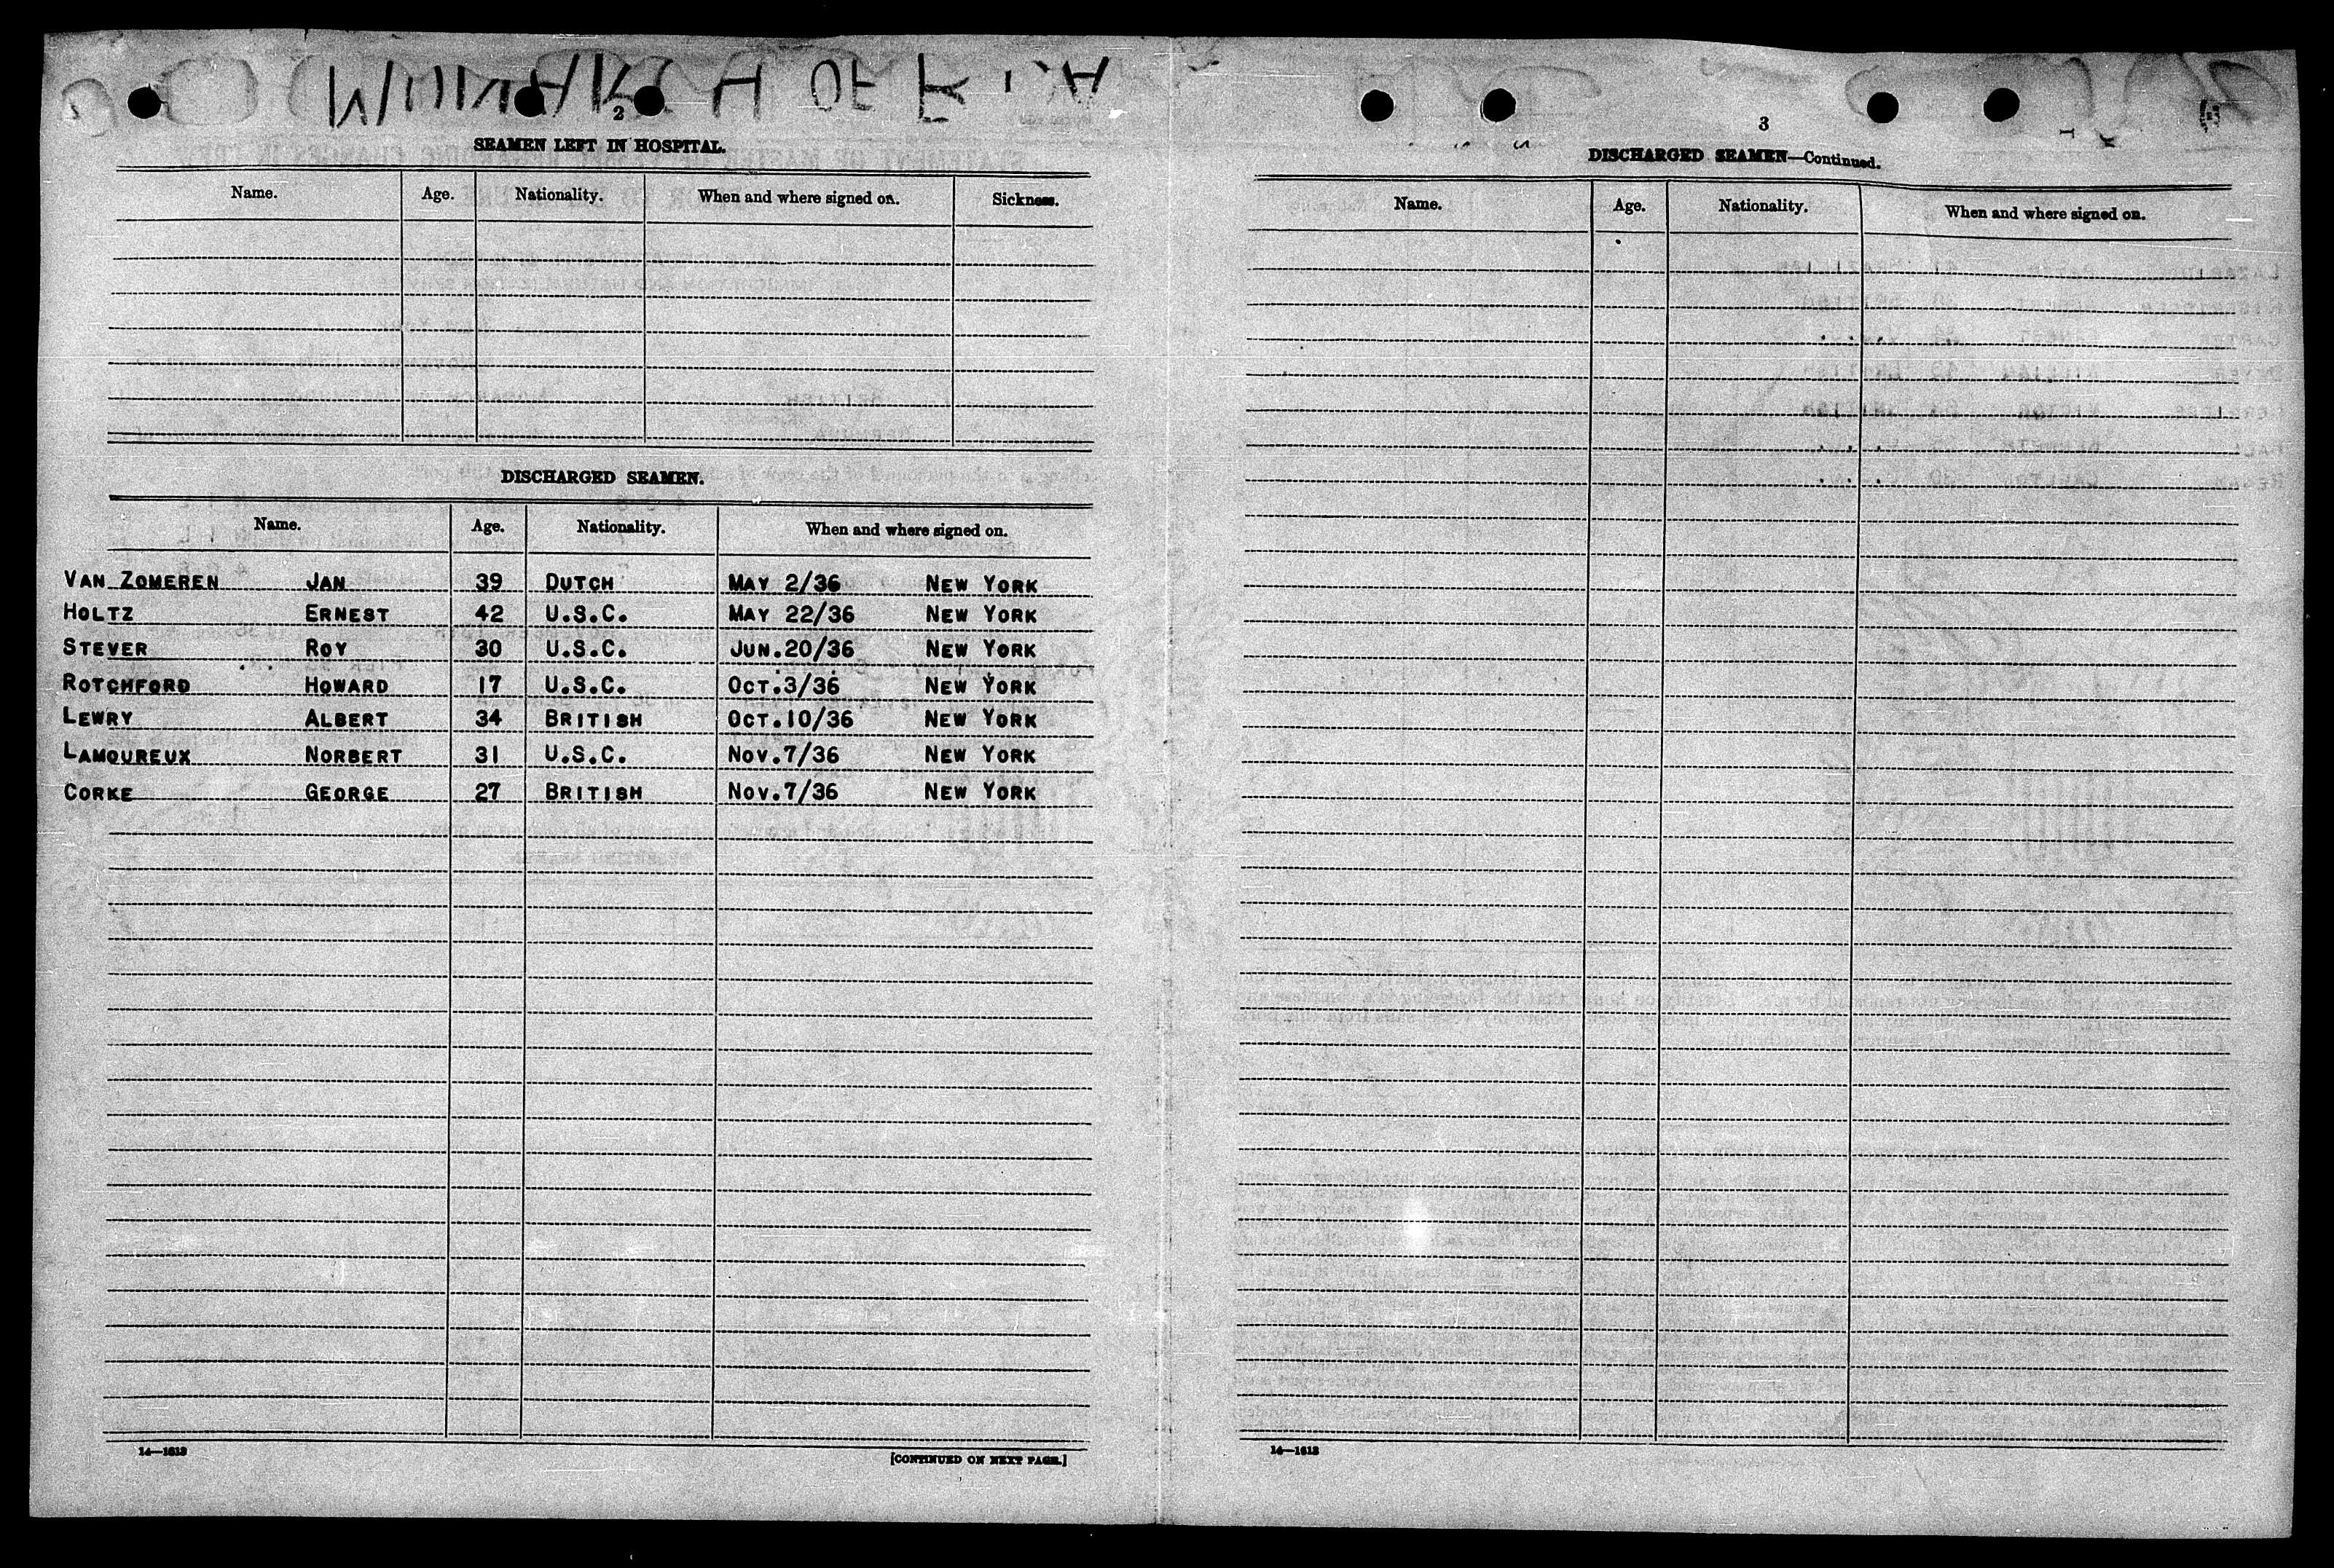 2
SEAMEN LEFT IN HOSPITAL.
Name. Age. Nationality. When and where signed on. Sickness.
DISCHARGED SEAMEN.
Name. Age. Nationality. When and where signed on.
VAN ZOMEREN JAN 39 DUTCH MAY 2/36 NEW YORK
HOLTZ ERNEST 42 U.S.C. MAY 22/36 NEW YORK
STEVER ROY 30 U.S.C. JUN.20/36 NEW YORK
ROTCHFORD HOWARD 17 U.S.C. OCT.3/36 NEW YORK
LEWRY ALBERT 34 BRITISH OCT.10/36 NEW YORK
LAMOUREUX NORBERT 31 U.S.C. NOV.7/36 NEW YORK
CORKE GEORGE 27 BRITISH NOV.7/36 NEW YORK
14—1613
[CONTINUED ON NEXT PAGE.]
3
DISCHARGED SEAMEN—Continued.
Name. Age. Nationality. When and where signed on.
14—1613